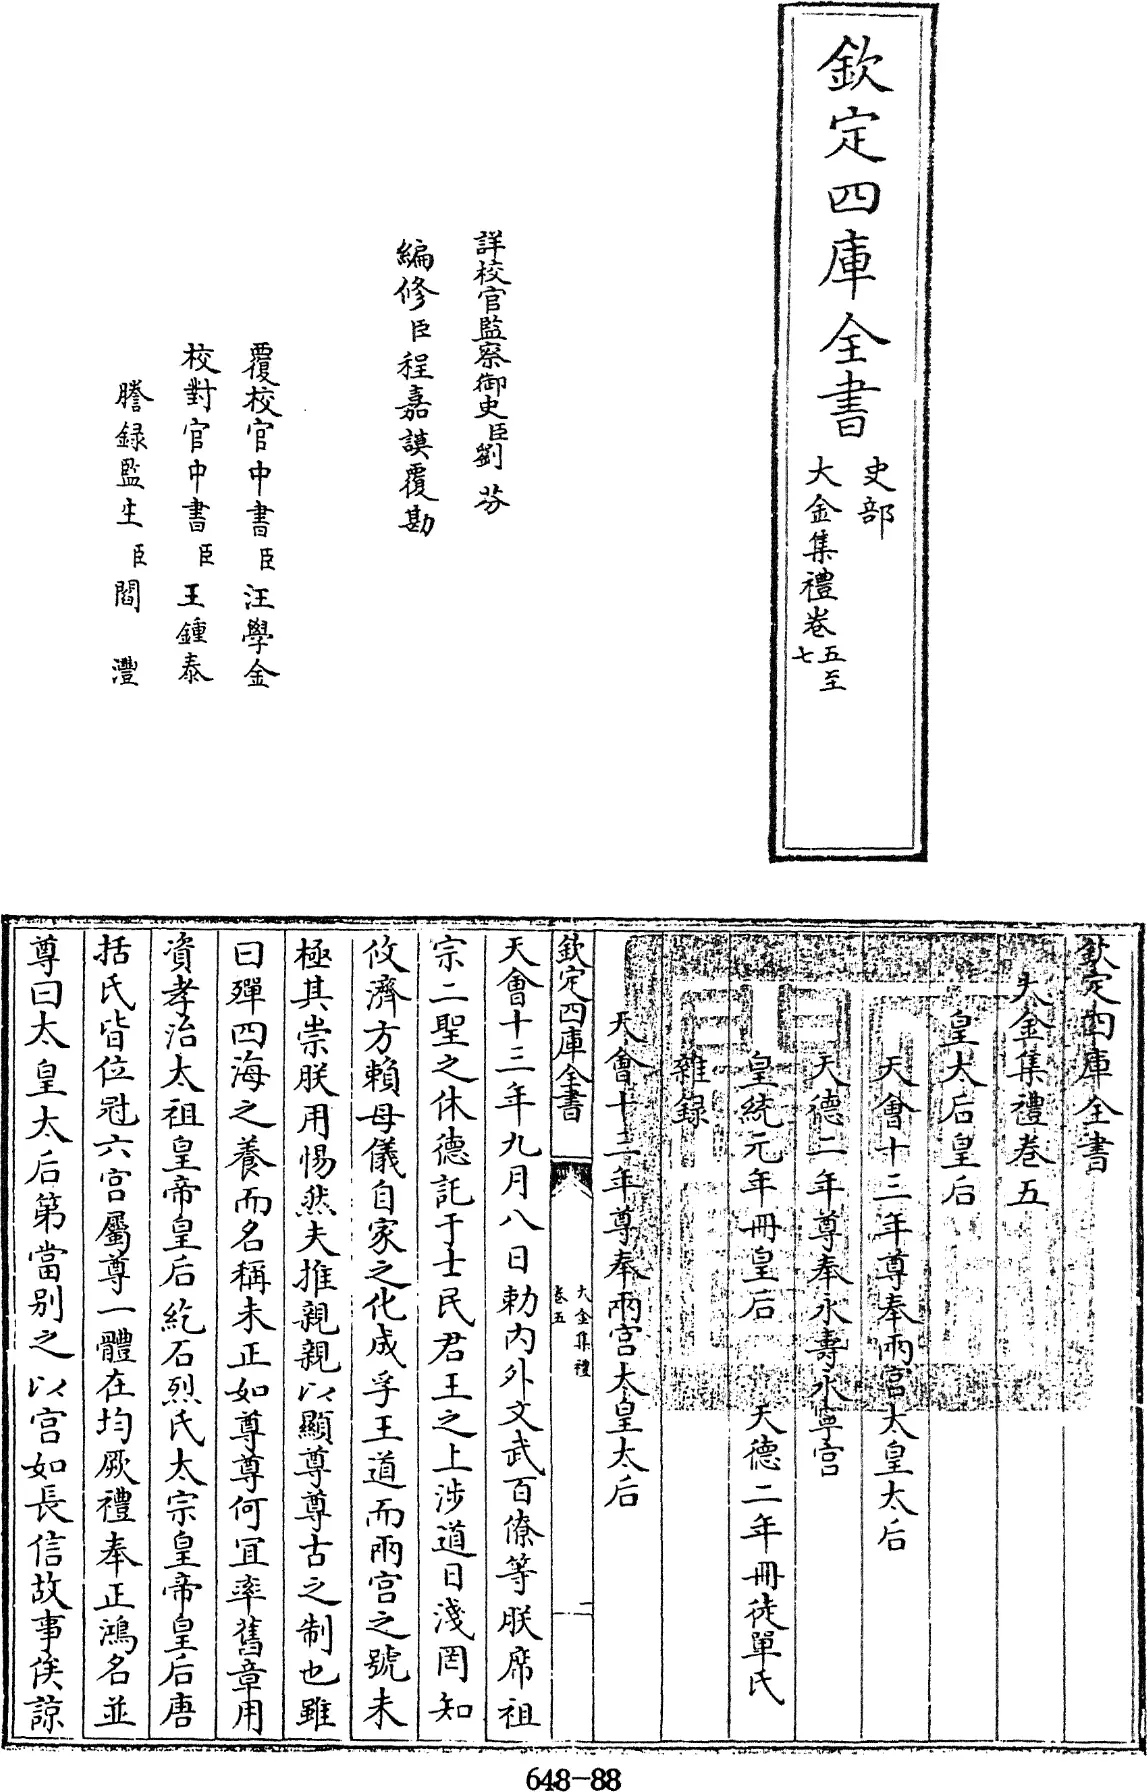 欽定四庫全書
史部
大金集禮卷五至七
詳校官監察御史臣劉芬
編修臣程嘉謨覆勘
覆校官中書臣汪學金
校對官中書臣王鍾泰
謄錄監生臣閻灃
欽定四庫全書
大金集禮卷五
皇太后皇后
天會十三年尊奉兩宫太皇太后
天德二年尊奉永壽永寧宫
皇統元年冊皇后 天德二年冊徒單氏
雜録
天會十三年尊奉兩宫太皇太后
欽定四庫全書 大金集禮 卷五 二
天會十三年九月八日勅内外文武百僚等朕席祖
宗二聖之休德託于士民君王之上涉道日淺罔知
攸濟方賴母儀自家之化成孚王道而兩宫之號未
極其崇朕用惕然夫推親親以顯尊尊古之制也雖
曰殫四海之養而名稱未正如尊尊何宜率舊章用
資孝治太祖皇帝皇后紇石烈氏太宗皇帝皇后唐
括氏皆位冠六宫屬尊一體在均厥禮奉正鴻名並
尊曰太皇太后第當别之以宫如長信故事俟諒
648-88